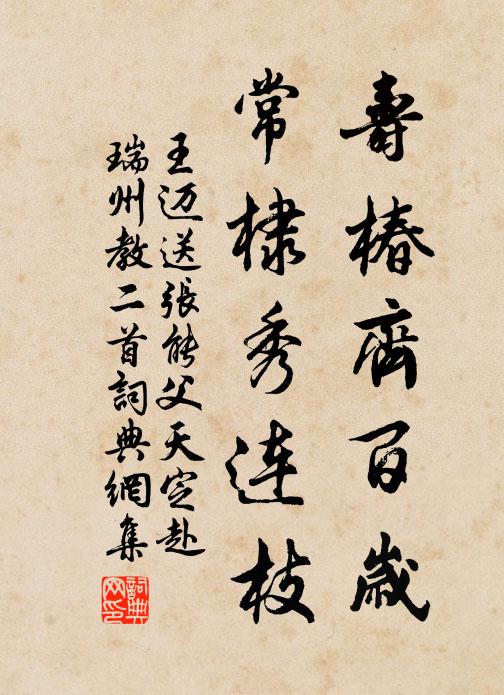 壽椿齊百歲
常棣秀連枝
王迈送張能父天定赴
瑞州教二首詞典網集
詞典网印